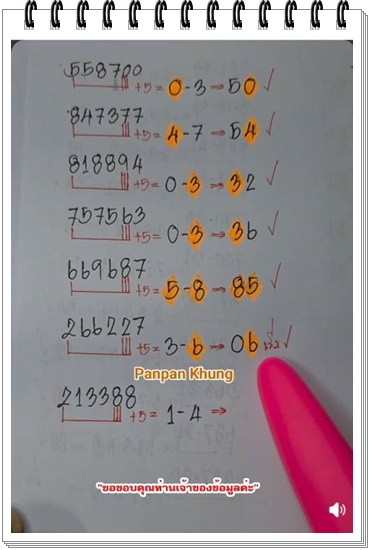 558700
+5= 0-3 → 50 ✓
847377
+5= 4-7 → 54 ✓
818894
+5= 0-3 → 32 ✓
757563
+5= 0-3 → 36 ✓
669687
+5= 5-8 → 85 ✓
266227
+5= 3-6 → 06 ✓
Panpan Khung
213388
+5= 1-4 →
"ขอขอบคุณท่านเจ้าของข้อมูลค่ะ"